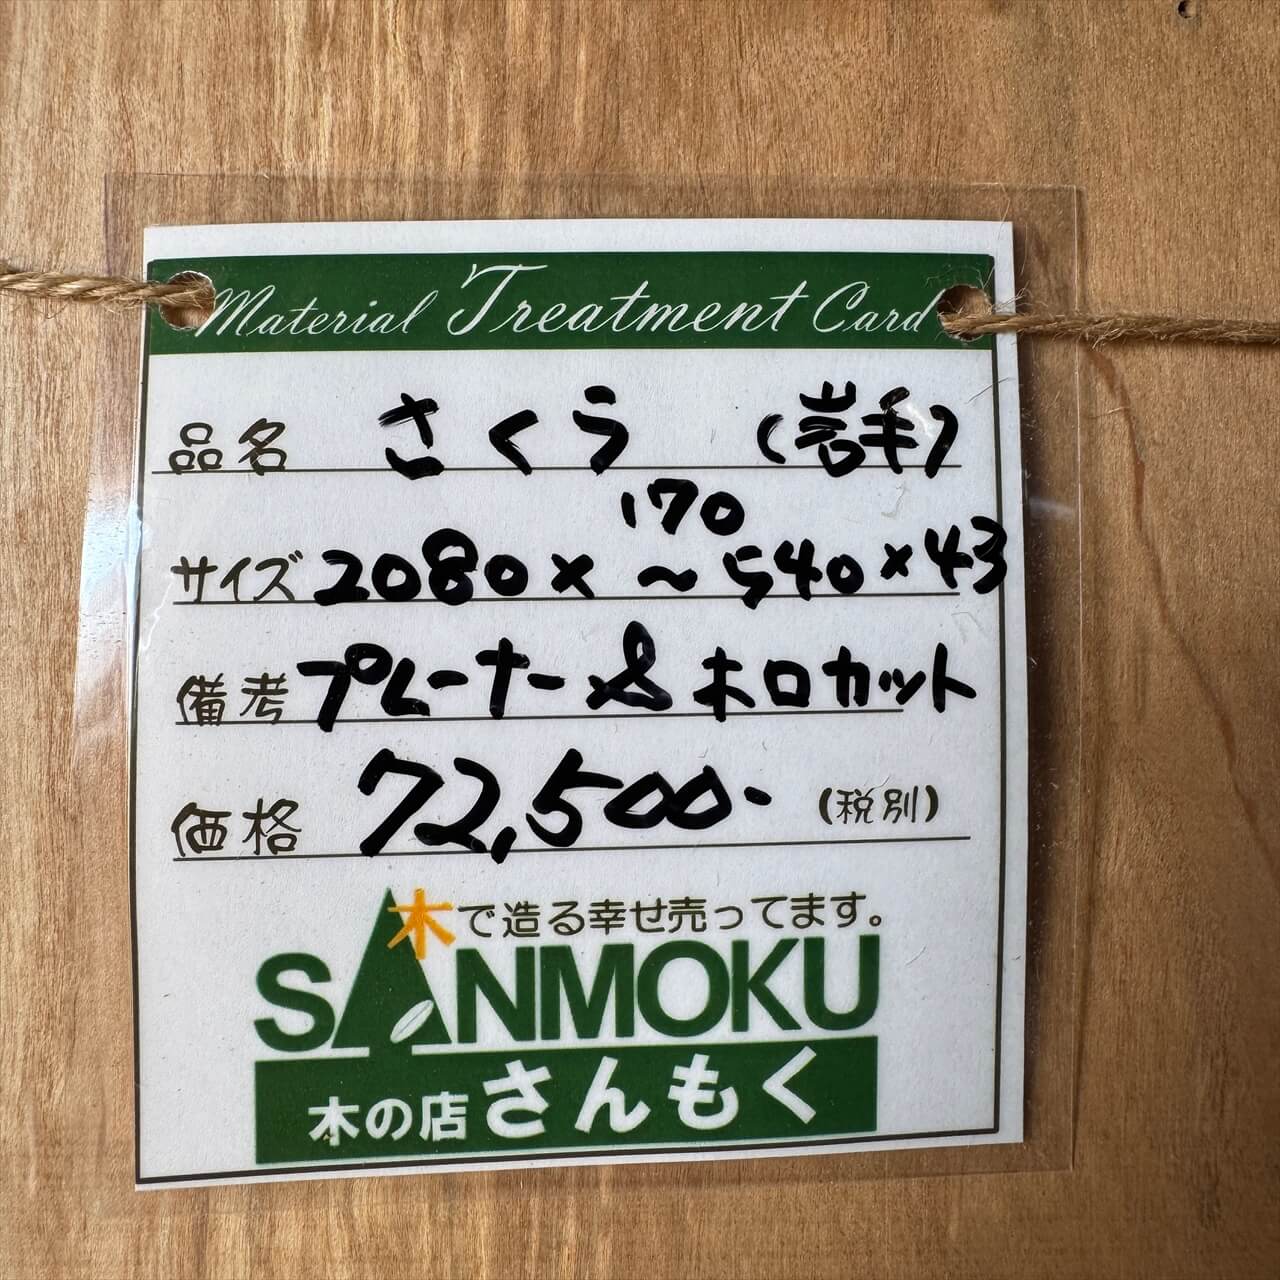 Material Treatment Card
品名 さくら (岩手)
170
サイズ 2080× ~540×43
備考 プレーナー&ホロカット
価格 72,500- (税別)
木で造る幸せ売ってます。
SANMOKU
木の店 さんもく